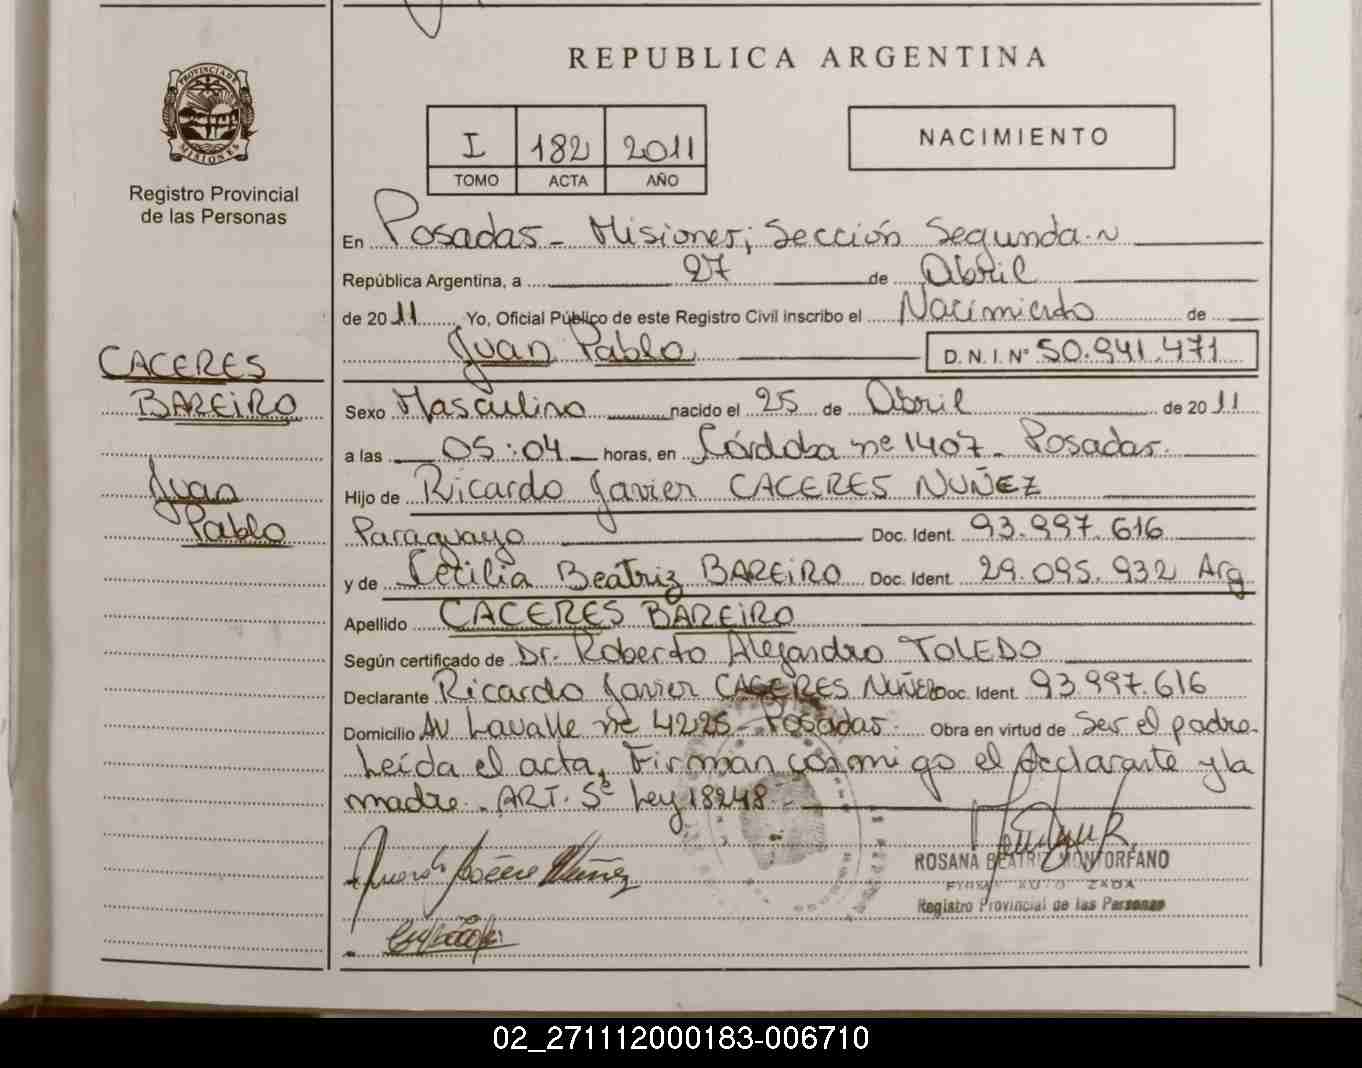 REPUBLICA ARGENTINA
PROVINCIA DE MISIONES
Registro Provincial
de las Personas
I 182 2011
TOMO ACTA AÑO
NACIMIENTO
En Posadas - Misiones; Sección Segunda.~
República Argentina, a 27 de Abril
de 2011 Yo, Oficial Público de este Registro Civil inscribo el Nacimiento de
Juan Pablo D.N.I. Nº 50.941.471
CACERES
BAREIRO
Juan
Pablo
Sexo Masculino nacido el 25 de Abril de 2011
a las 05:04 horas, en Córdoba nº 1407 - Posadas.
Hijo de Ricardo Javier CACERES NUÑEZ
Paraguayo Doc. Ident. 93.997.616
y de Cecilia Beatriz BAREIRO Doc. Ident. 29.095.932 Arg
Apellido CACERES BAREIRO
Según certificado de Dr. Roberto Alejandro TOLEDO
Declarante Ricardo Javier CACERES NUÑEZ Doc. Ident. 93.997.616
Domicilio AV Lavalle nº 4225 - Posadas. Obra en virtud de Ser el padre.
Leída el acta, Firman conmigo el declarante y la
madre. ART. 5º Ley 18248.
ROSANA BEATRIZ MONTORFANO
Registro Provincial de las Personas
02_271112000183-006710